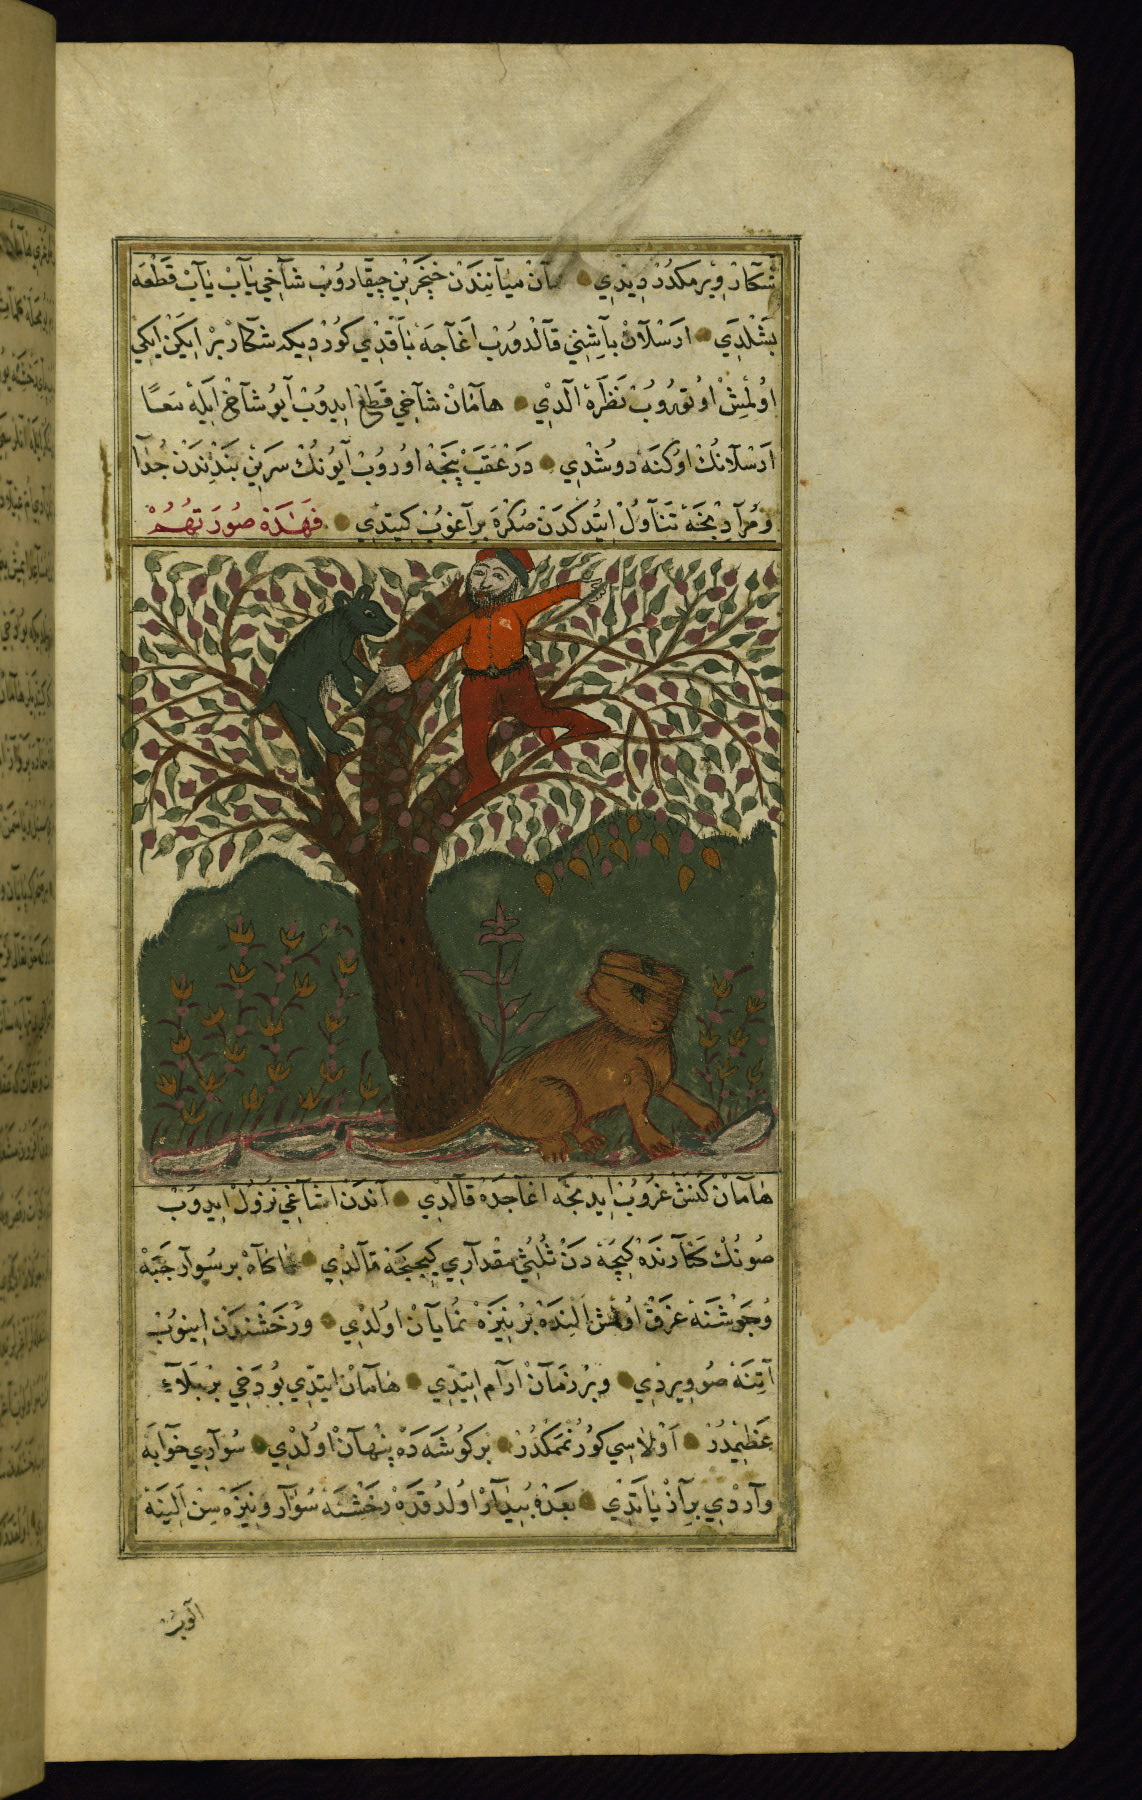 شكار ويرمكدر ديدي هامان ميانندن خنجرين چيقاروب شاخي ياب ياب قطعه
بشلدي ارسلان باشني قالدوروب اغاجه باقدي كوردیكه شكار بر ایكن ایكي
اولمش اوتوروب نظره الدي هامان شاخي قطع ايدوب آيو شاخ ايله معا
ارسلانك اوكنه دوشدي درعقب پنجه اوروب آيونك سرين بندندن جدا
ومرادنجه تناول ايتدكدن صكره براغوب كيتدي فهذه صورتهم
هامان كنش غروب ايدنجه اغاجده قالدي آندن اشاغي نزول ايدوب
صونك كنارنده كيچه دن ثلثي مقداري كيجنجه قالدي ناكاه بر سوار جبه
وجوشنه غرق اولمش النده بر نيزه نمايان اولدي ورخشندن اينوب
آتنه صو ويردي وبر زمان ارام ايتدي هامان ايتدي بو دخي بر بلاء
عظيمدر اولاسي كورنممكدر بر كوشه ده پنهان اولدي سواري خوابه
واردي براز ياتدي بعده بيدار اولدقده رخشنه سوار ونيزه سن الينه
الوب